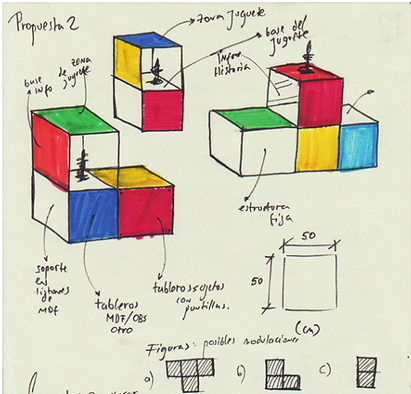 Propuesta 2
zona juguete
base del
juguete
zona
de
juguete
base
info
Info
Historia
estructura
fija
soporte
en
listones
de
MDF
tableros
MDF/OBS
otro
tableros sujetos
con
puntillas.
50
50
(cm)
Figuras: posibles modulaciones
a)
b)
c)